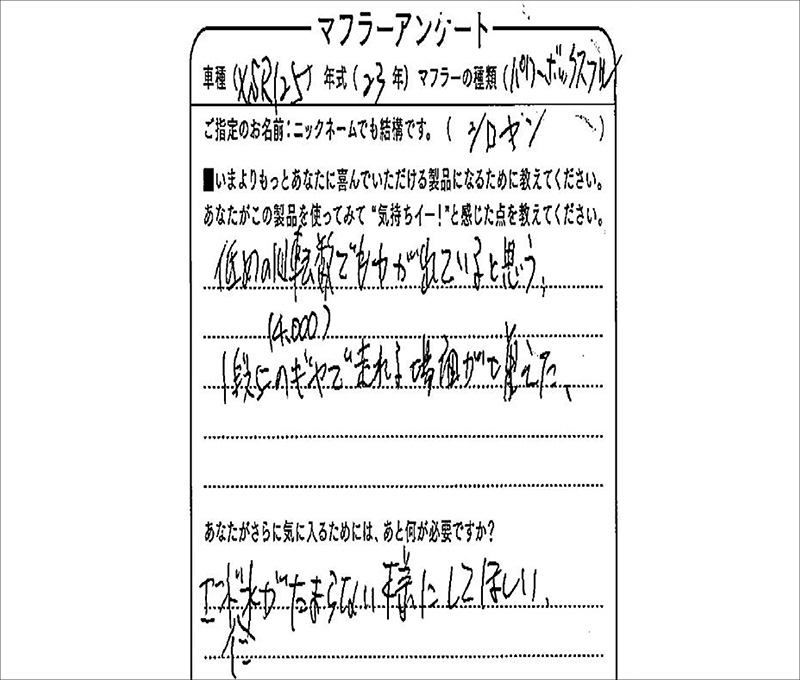 マフラーアンケート
車種(XSR125) 年式(23年) マフラーの種類(パワーボックスフル
ご指定のお名前:ニックネームでも結構です。(シロヤン)
■いまよりもっとあなたに喜んでいただける製品になるために教えてください。
あなたがこの製品を使ってみて“気持ちイー!”と感じた点を教えてください。
低めの回転数でも力が出ていると思う、
(4,000)
1段上のギヤで走れる場面が増えた、
あなたがさらに気に入るためには、あと何が必要ですか?
エンド水がたまらない様にしてほしい、
に